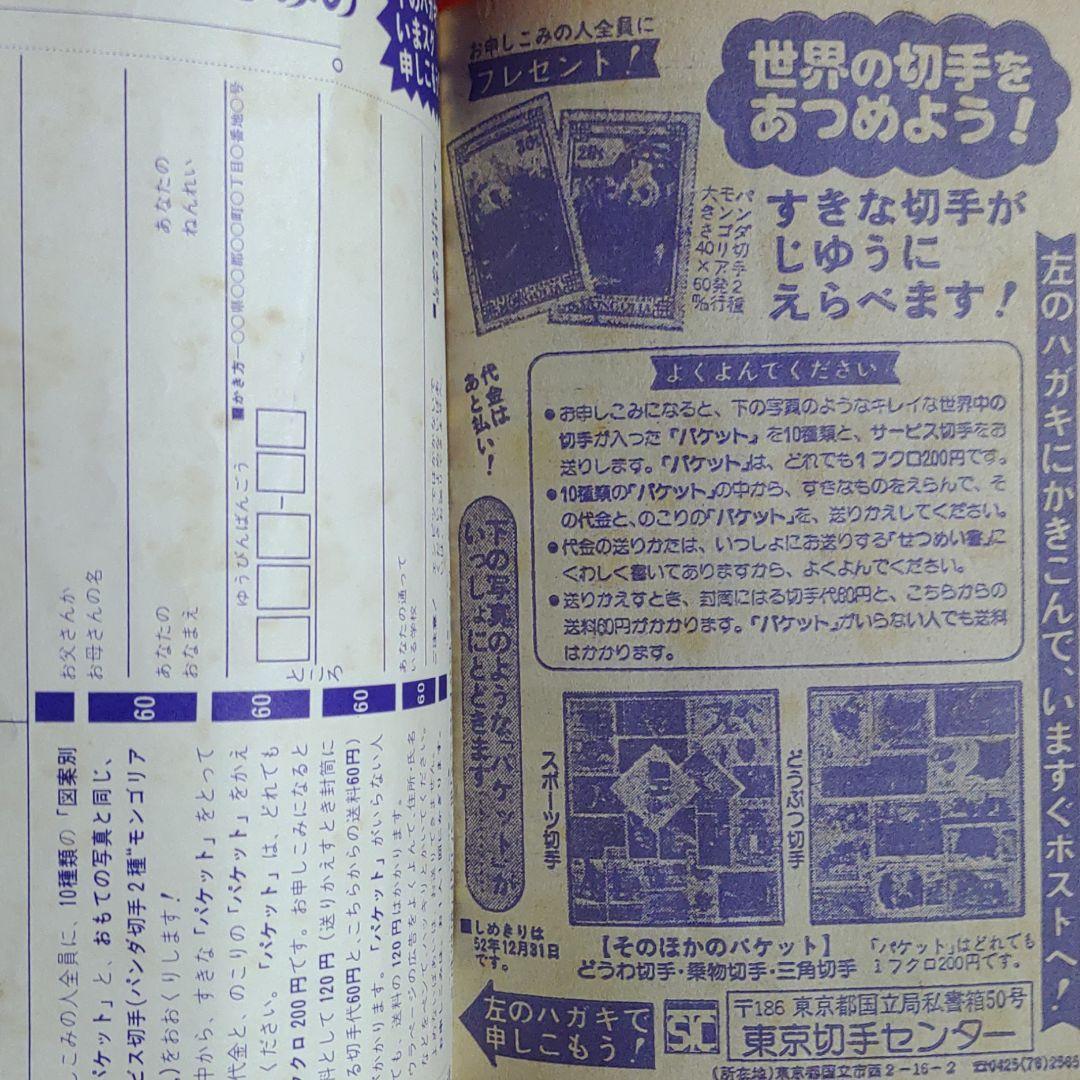 お申しこみの人全員に
プレゼント!
世界の切手を
あつめよう!
すきな切手が
じゆうに
えらべます!
パンダ切手2種
モンゴリア発行
大きさ40×60㎜
左のハガキにかきこんで、いますぐポストへ!
代金は
あと払い!
よくよんでください
●お申しこみになると、下の写真のようなキレイな世界中の
切手が入った「パケット」を10種類と、サービス切手をお
送りします。「パケット」は、どれでも1フクロ200円です。
●10種類の「パケット」の中から、すきなものをえらんで、そ
の代金と、のこりの「パケット」を、送りかえしてください。
●代金の送りかたは、いっしょにお送りする「せつめい書」に
くわしく書いてありますから、よくよんでください。
●送りかえすとき、封筒にはる切手代60円と、こちらからの
送料60円がかかります。「パケット」がいらない人でも送料
はかかります。
下の写真のような「パケット」が
いっしょにとどきます
スポーツ切手
どうぶつ切手
■しめきりは
52年12月31日
です。
【そのほかのパケット】
どうわ切手・乗物切手・三角切手
「パケット」はどれでも
1フクロ200円です。
左のハガキで
申しこもう!
〒186 東京都国立局私書箱50号
東京切手センター
(所在地)東京都国立市西2-16-2
いますぐ
申しこ
お父さんか
お母さんの名
あなたの
おなまえ
あなたの
ねんれい
ゆうびんばんごう
■かき方—〇〇県〇〇郡〇〇町〇丁目〇番地〇号
ところ
あなたの通って
いる学校
60
60
60
60
しこみの人全員に、10種類の「図案別
パケット」と、おもての写真と同じ、
ビス切手(パンダ切手2種"モンゴリア
)をおおくりします!
中から、すきな「パケット」をとって
代金と、のこりの「パケット」をかえ
ください。「パケット」は、どれでも
フクロ200円です。お申しこみになると
料として120円(送りかえすとき封筒に
る切手代60円と、こちらからの送料60円)
かかります。「パケット」がいらない人
ても、送料の120円はかかります。